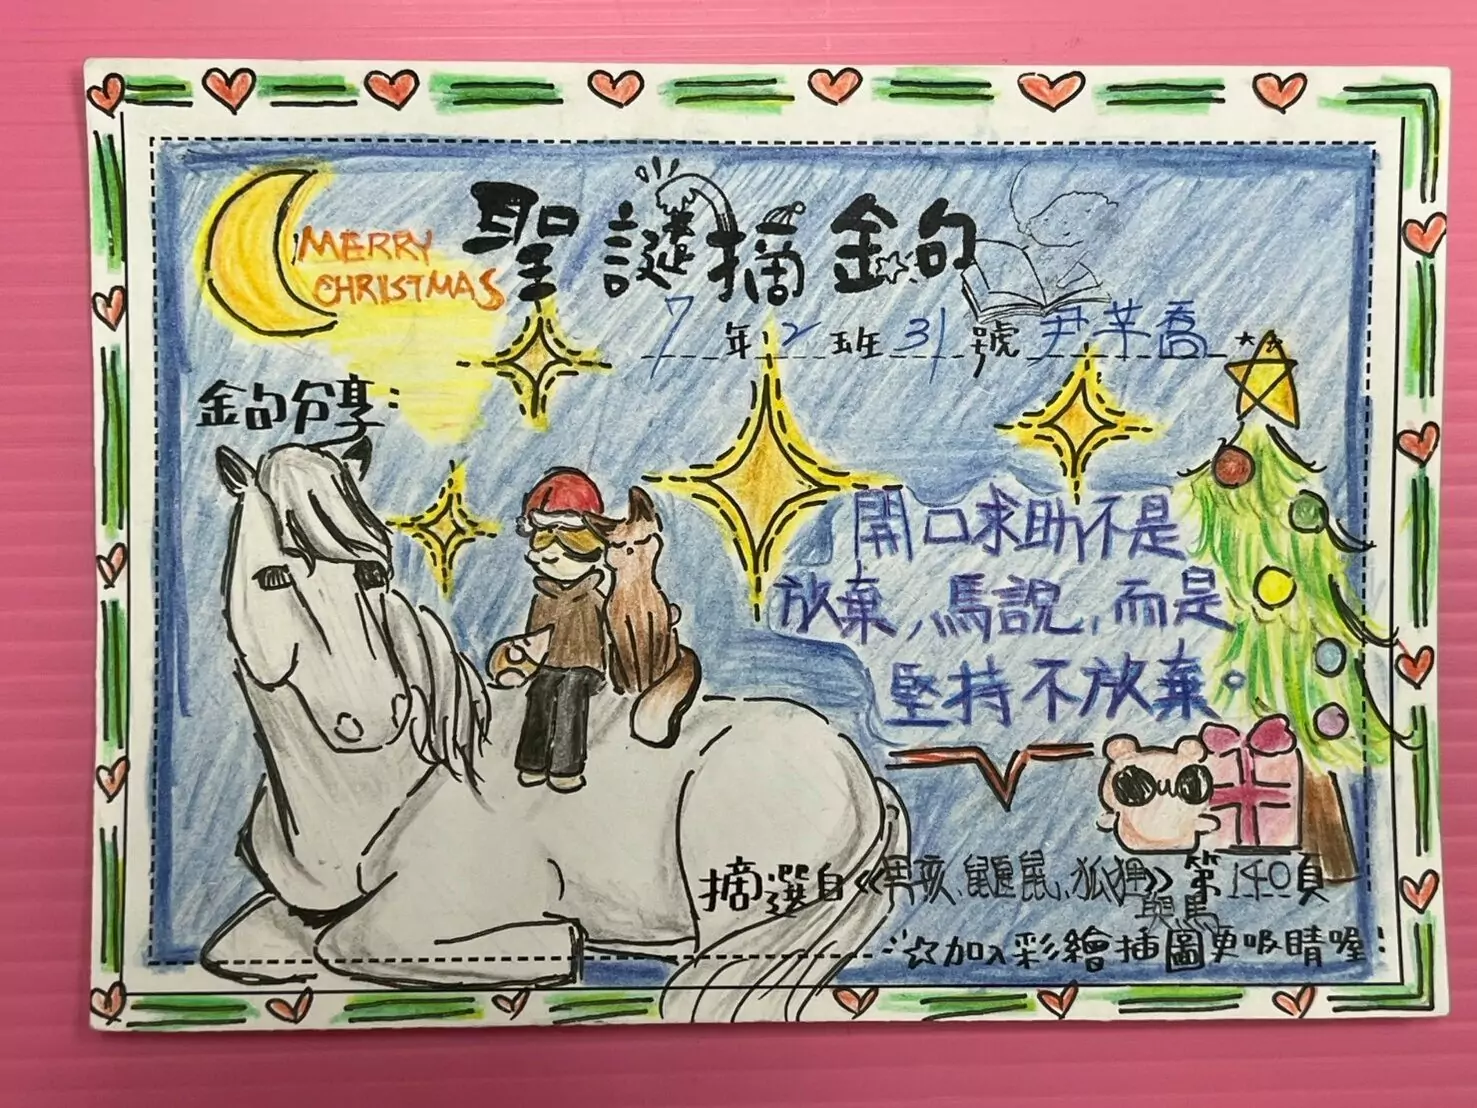 MERRY
CHRIISTMAS
聖誕摘金句
7年2班31號 尹芊喬
金句分享:
開口求助不是
放棄,馬說,而是
堅持不放棄。
摘選自《男孩、鼴鼠、狐狸
與馬》第140頁
☆加入彩繪插圖更吸睛喔!